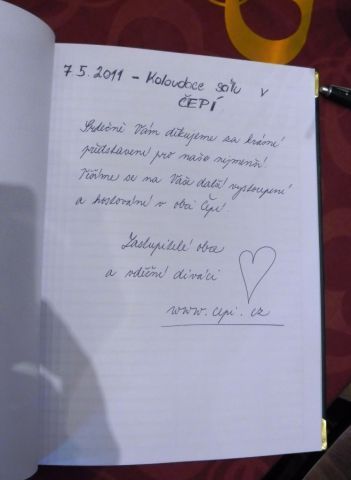 7.5.2011 - Kolovdoce sálu v
ČEPÍ
Srdečně Vám děkujeme za krásné
představení pro naše nejmenší!
Těšíme se na Vaše další vystoupení
a hostování v obci Čepí!
Zastupitelé obce
a vděční diváci
www.cepi.cz